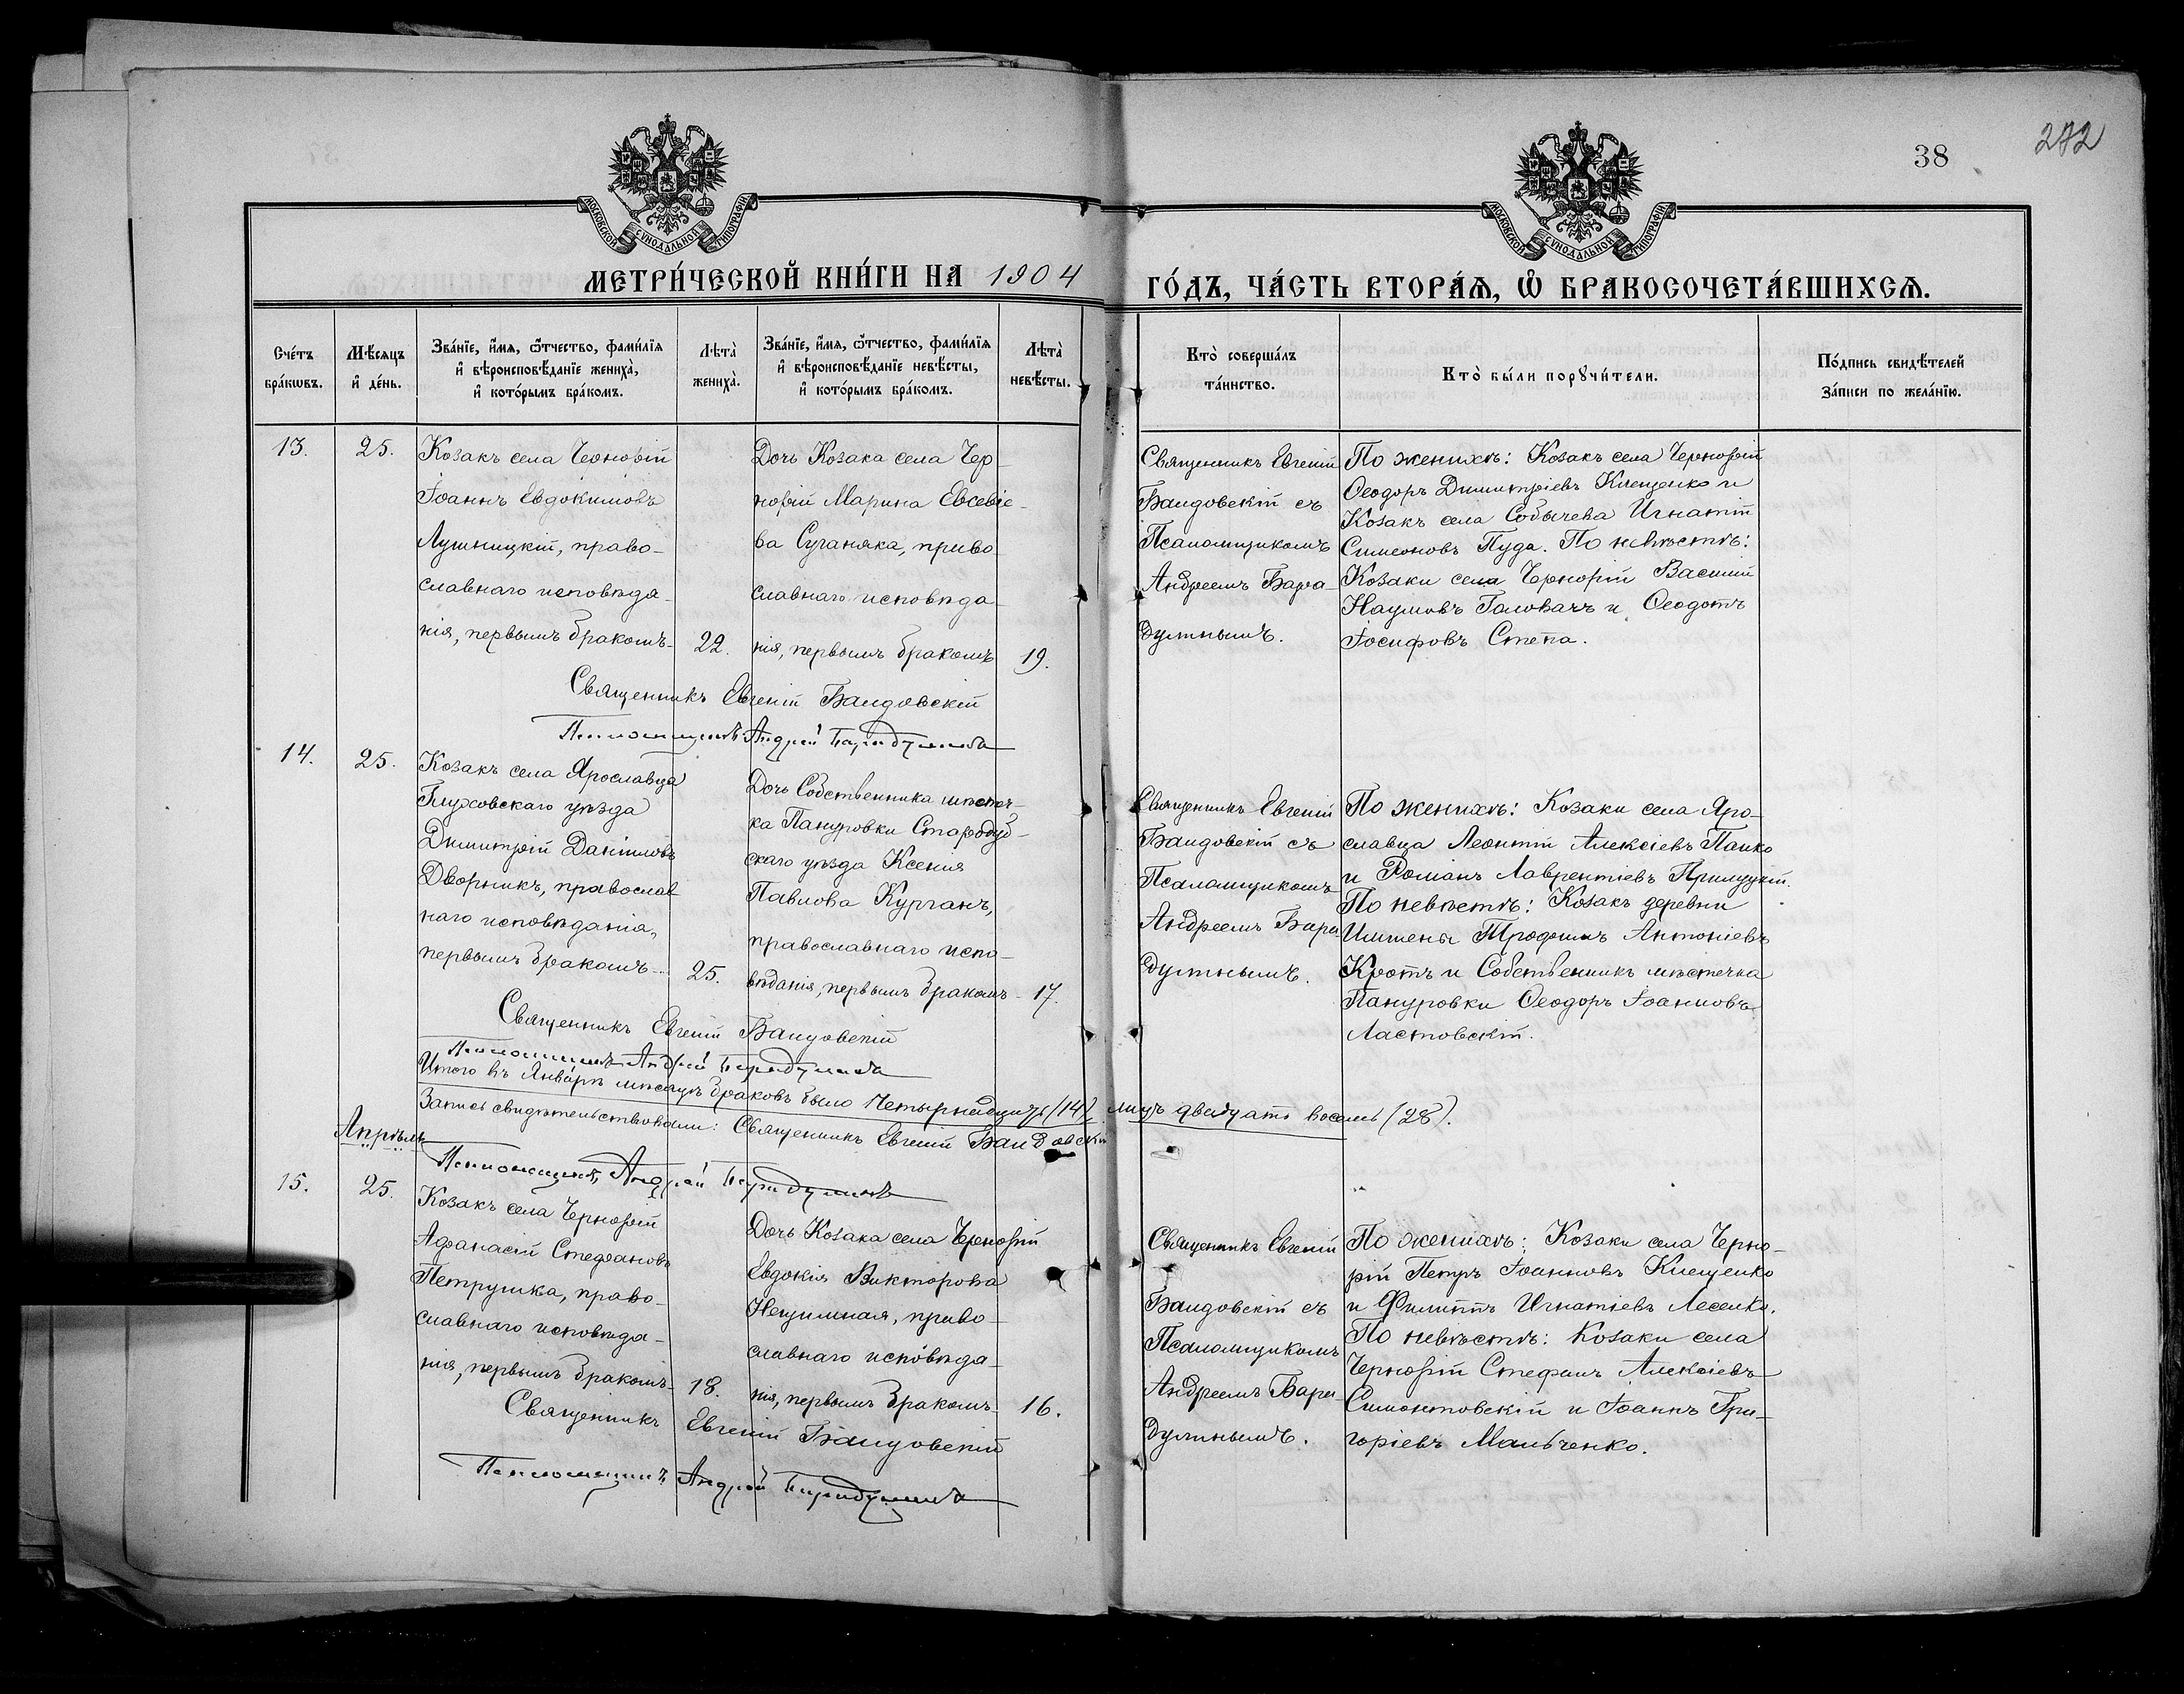 38
272
МОСКОВСКОЙ СѴНОДАЛЬНОЙ ТИПОГРАФІИ
МОСКОВСКОЙ СѴНОДАЛЬНОЙ ТИПОГРАФІИ
МЕТРИ́ЧЕСКОЙ КНИ́ГИ НА 1904 ГО́ДЪ, ЧА́СТЬ ВТОРА́Ѧ, Ѽ БРАКОСОЧЕТА́ВШИХСѦ.
Сче́тъ бра́кѡвъ.
Мѣ́сѧцъ и҆ де́нь.
Зва́нїе, и҆́мѧ, ѻ҆́тчество, фамѝлїѧ и҆ вѣроисповѣ́данїе жениха̀, и҆ кото́рымъ бра́комъ.
Лѣта̀ жениха̀.
Зва́нїе, и҆́мѧ, ѻ҆́тчество, фамѝлїѧ и҆ вѣроисповѣ́данїе невѣ́сты, и҆ кото́рымъ бра́комъ.
Лѣта̀ невѣ́сты.
Кто̀ соверша́лъ та́инство.
Кто̀ бы́ли порꙋчи́тели.
По́дпись свидѣ́телей за́писи по жела́нїю.
13.
25.
Козакъ села Чернорій
Іоаннъ Евдокимовъ
Лушницкій, право-
славнаго исповѣда-
нія, первымъ бракомъ-
22.
Дочь Козака села Чер-
норій Марина Евсевіе-
ва Суганяка, право-
славнаго исповѣда-
нія, первымъ бракомъ
19.
Священникъ Евгеній
Бандовскій съ
Псаломщикомъ
Андреемъ Бара-
дулинымъ.
По женихѣ: Козакъ села Чернорій
Ѳеодоръ Димитріевъ Клещенко и
Козакъ села Собычева Игнатій
Симеоновъ Пуда. По невѣстѣ:
Козаки села Чернорій Василій
Наумовъ Головачъ и Ѳеодотъ
Іосифовъ Степа.
Священникъ Евгеній Бандовскій
Псаломщикъ Андрей Барадулинъ
14.
25.
Козакъ села Ярославца
Глуховскаго уѣзда
Димитрій Даніиловъ
Дворникъ, православ
наго исповѣданія,
первымъ бракомъ-
25.
Дочь Собственника мѣстеч-
ка Пануровки Стародуб-
скаго уѣзда Ксенія
Павлова Курганъ,
православнаго испо-
вѣданія, первымъ бракомъ-
17.
Священникъ Евгеній
Бандовскій съ
Псаломщикомъ
Андреемъ Бара
дулинымъ.
По женихѣ: Козаки села Яро-
славца Леонтій Алексіевъ Панко
и Романъ Лаврентіевъ Прилуцкій.
По невѣстѣ: Козакъ деревни
Трофимъ Антоніевъ
Кротъ и Собственникъ мѣстечка
Пануровки Ѳеодоръ Іоанновъ
Ластовскій.
Священникъ Евгеній Бандовскій
Псаломщикъ Андрей Барадулинъ
Итого въ Январѣ мѣсяцѣ браковъ было четырнадцать (14), лицъ двадцать восемь (28).
Запись свидѣтельствовали: Священникъ Евгеній Бандовскій
Псаломщикъ Андрей Барадулинъ
Апрѣль
15.
25.
Козакъ села Чернорій
Афанасій Стефановъ
Петрушка, право-
славнаго исповѣда-
нія, первымъ бракомъ-
18.
Дочь Козака села Чернорій
Евдокія Викторова
Нещимная, право-
славнаго исповѣда-
нія, первымъ бракомъ-
16.
Священникъ Евгеній
Бандовскій съ
Псаломщикомъ
Андреемъ Бара-
дулинымъ.
По женихѣ: Козаки села Черно-
рій Петръ Іоанновъ Клещенко
и Филиппъ Игнатіевъ Лесенко.
По невѣстѣ: Козаки села
Чернорій Стефанъ Алексіевъ
Симонтовскій и Іоаннъ Гри-
горіевъ Мальченко.
Священникъ Евгеній Бандовскій
Псаломщикъ Андрей Барадулинъ